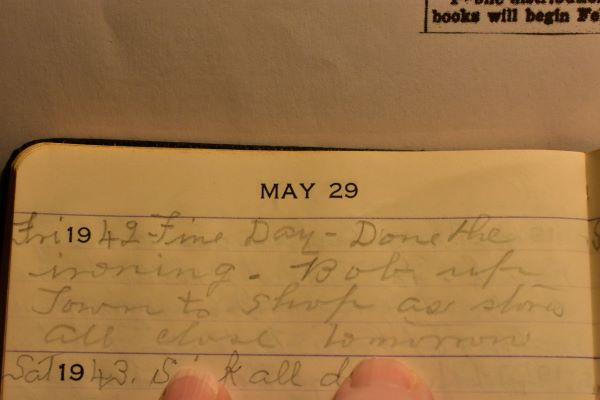 books will begin
MAY 29
Fri 1942 Fine Day - Done the
ironing. Bob up
Town to shop as stores
all close tomorrow
Sat 1943. all